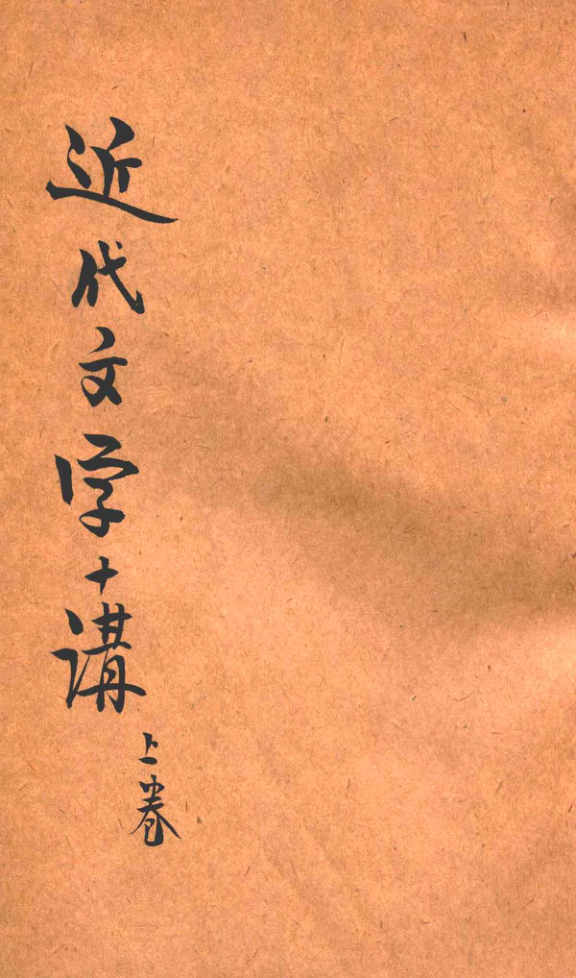 近代文学十講
上卷